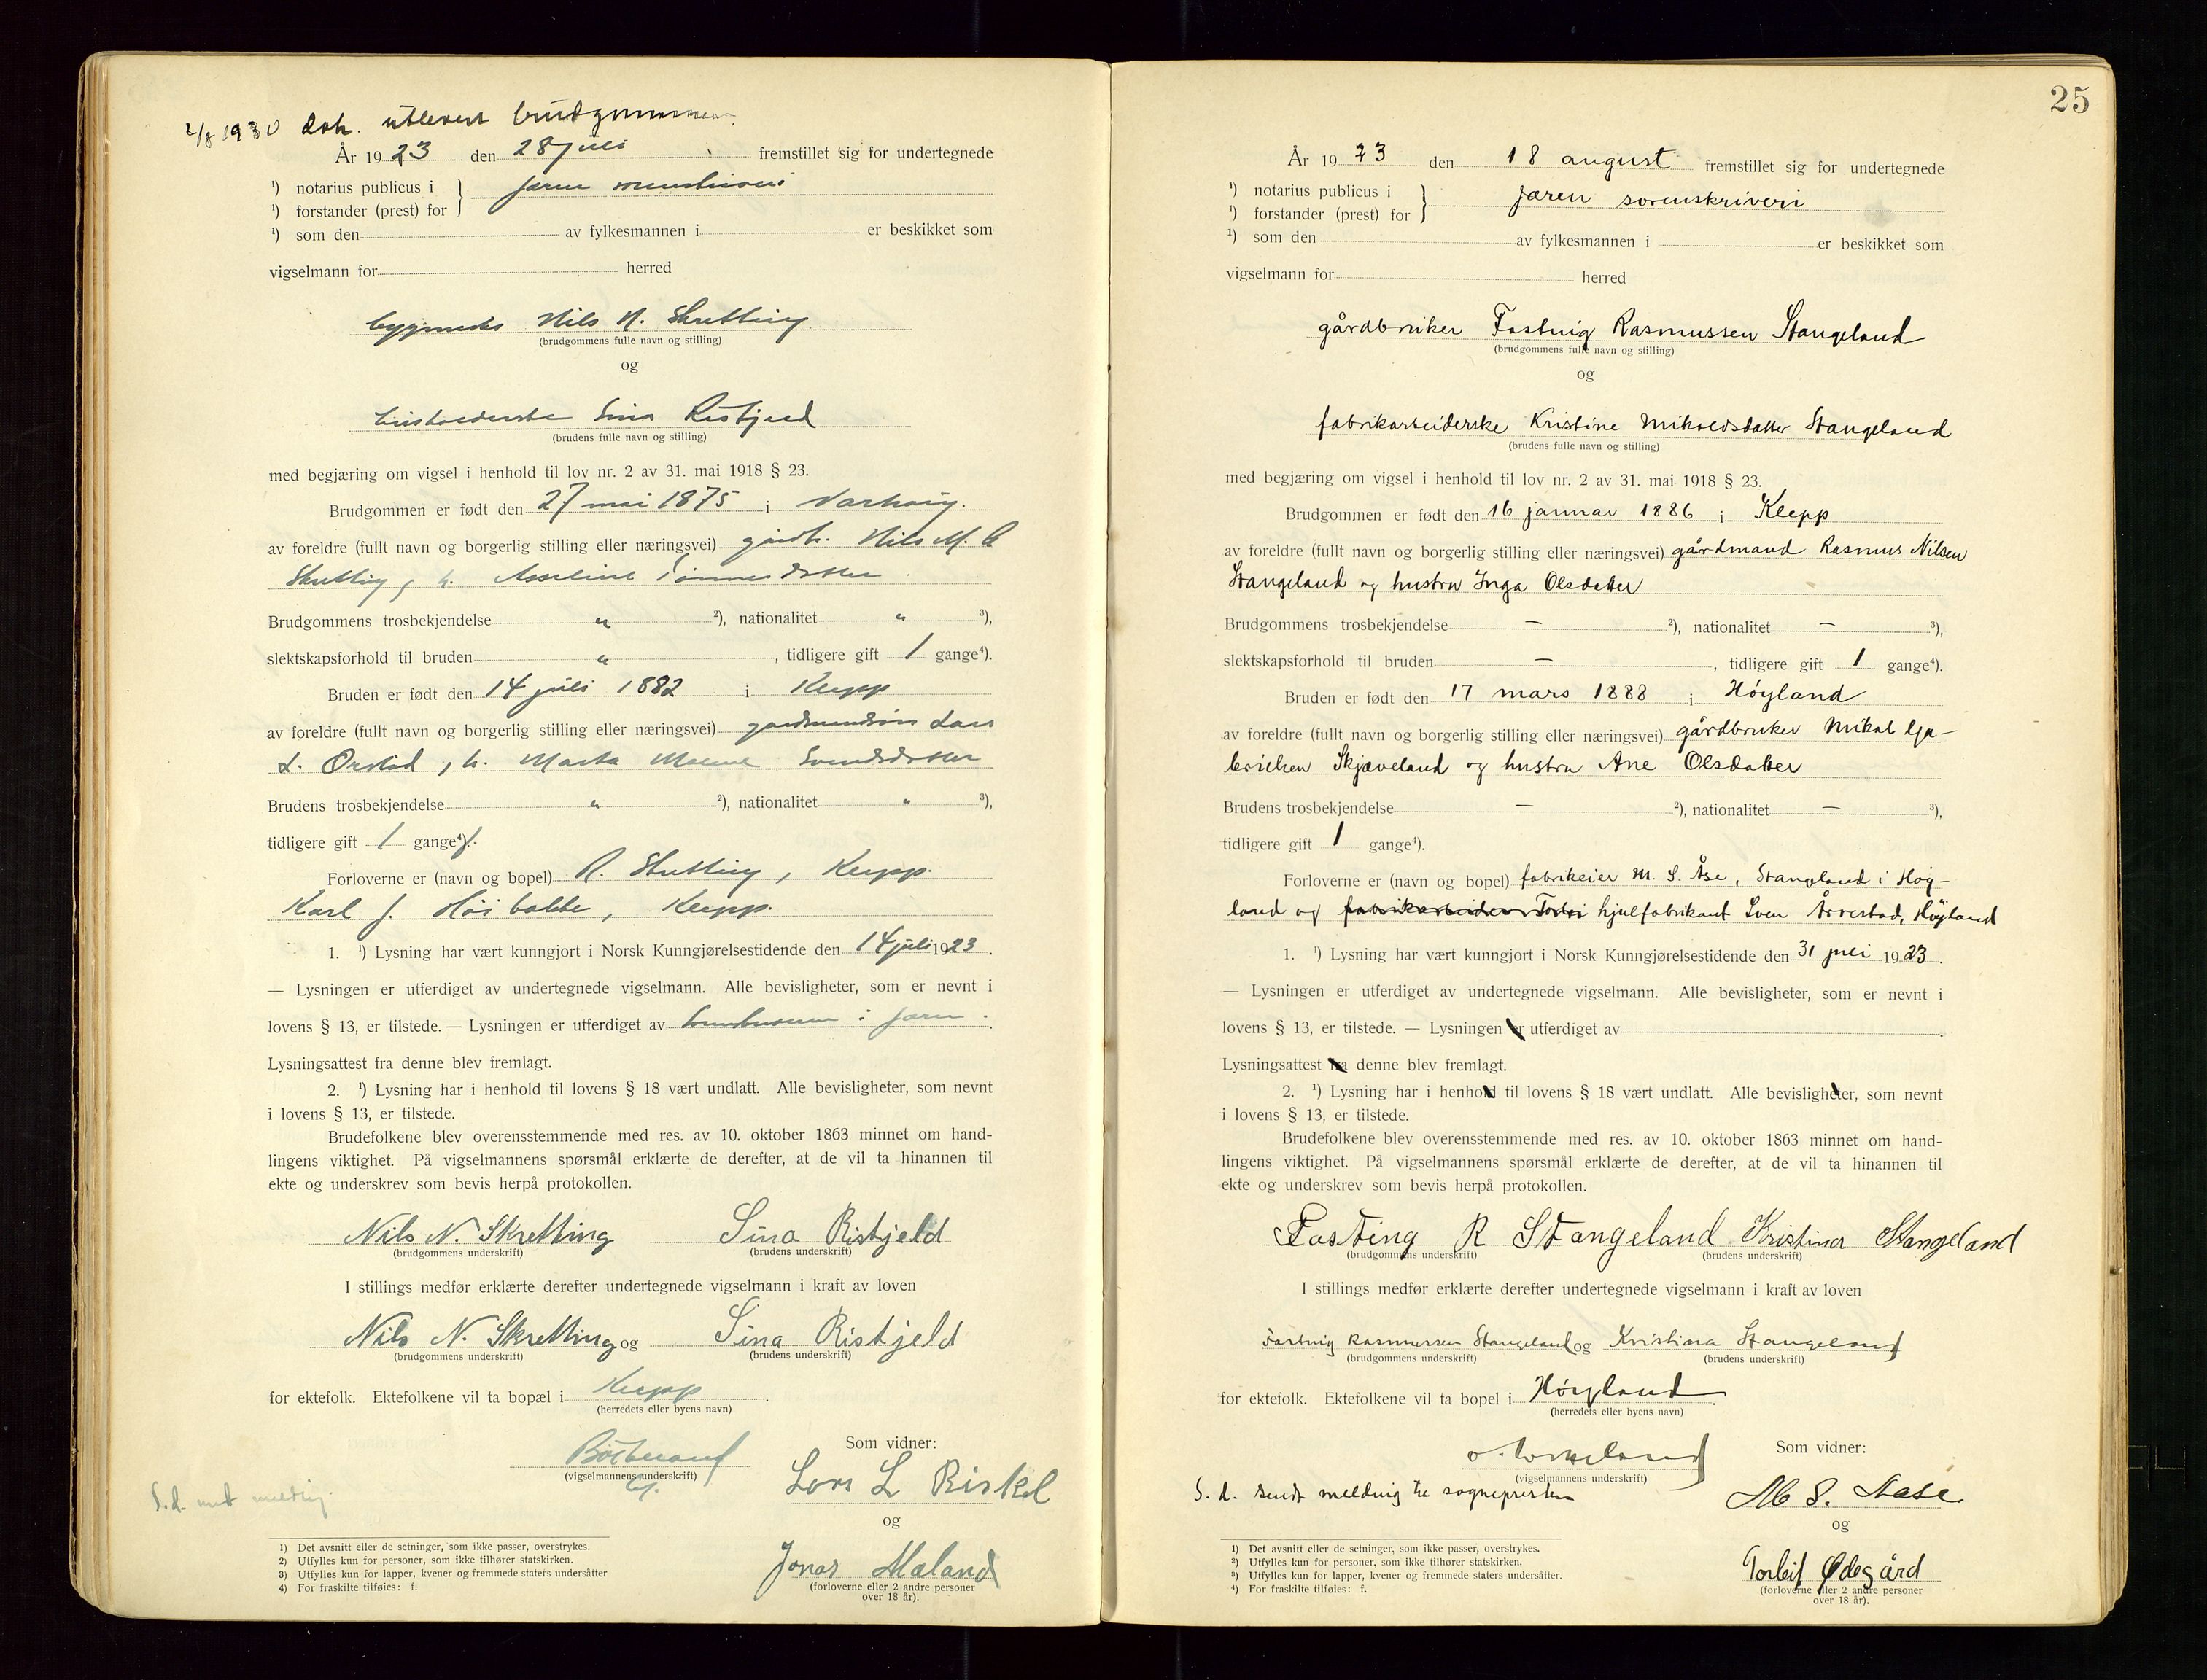 2/8 1930 dok. utlevert brudgommen.
År 1923 den 28 juli fremstillet sig for undertegnede
¹) notarius publicus i } Jæren
¹) forstander (prest) for
¹) som den av fylkesmannen i er beskikket som
vigselmann for herred
Nils N. Skretting
(brudgommens fulle navn og stilling)
og
Sina Ristjeld
(brudens fulle navn og stilling)
med begjæring om vigsel i henhold til lov nr. 2 av 31. mai 1918 § 23.
Brudgommen er født den 27 mai 1875 i Varhaug.
av foreldre (fullt navn og borgerlig stilling eller næringsvei) gårdb. Nils M.
Skretting, h. Asseline Tønnesdatter
Brudgommens trosbekjendelse " ²), nationalitet " ³),
slektskapsforhold til bruden " , tidligere gift 1 gange⁴).
Bruden er født den 14 juli 1882 i Klepp
av foreldre (fullt navn og borgerlig stilling eller næringsvei) Lars
L. Orstad, h. Marta Malene Svendsdatter
Brudens trosbekjendelse " ²), nationalitet " ³),
tidligere gift 1 gange⁴).
Forloverne er (navn og bopel) R. Skretting, Klepp.
Karl J. Klepp.
1. ¹) Lysning har vært kunngjort i Norsk Kunngjørelsestidende den 14 juli 1923.
— Lysningen er utferdiget av undertegnede vigselmann. Alle bevisligheter, som er nevnt i
lovens § 13, er tilstede. — Lysningen er utferdiget av i Jæren.
Lysningsattest fra denne blev fremlagt.
2. ¹) Lysning har i henhold til lovens § 18 vært undlatt. Alle bevisligheter, som nevnt
i lovens § 13, er tilstede.
Brudefolkene blev overensstemmende med res. av 10. oktober 1863 minnet om hand-
lingens viktighet. På vigselmannens spørsmål erklærte de derefter, at de vil ta hinannen til
ekte og underskrev som bevis herpå protokollen.
Nils N. Skretting Sina Ristjeld
(brudgommens underskrift) (brudens underskrift)
I stillings medfør erklærte derefter undertegnede vigselmann i kraft av loven
Nils N. Skretting og Sina Ristjeld
(brudgommens underskrift) (brudens underskrift)
for ektefolk. Ektefolkene vil ta bopæl i Klepp.
(herredets eller byens navn)
Som vidner:
(vigselmannens underskrift)
Lars L
S. d. meldig.
og
Jonas Mæland
(forloverne eller 2 andre personer
over 18 år).
1) Det avsnitt eller de setninger, som ikke passer, overstrykes.
2) Utfylles kun for personer, som ikke tilhører statskirken.
3) Utfylles kun for lapper, kvener og fremmede staters undersåtter
4) For fraskilte tilføies: f.
25
År 1923 den 18 august fremstillet sig for undertegnede
¹) notarius publicus i } Jæren sorenskriveri
¹) forstander (prest) for
¹) som den av fylkesmannen i er beskikket som
vigselmann for herred
gårdbruker Fasting Rasmussen Stangeland
(brudgommens fulle navn og stilling)
og
fabrikarbeiderske Kristine Mikalsdatter Stangeland
(brudens fulle navn og stilling)
med begjæring om vigsel i henhold til lov nr. 2 av 31. mai 1918 § 23.
Brudgommen er født den 16 januar 1886 i Klepp
av foreldre (fullt navn og borgerlig stilling eller næringsvei) gårdmand Rasmus Nilsen
Stangeland og hustru Inga Olsdatter
Brudgommens trosbekjendelse — ²), nationalitet — ³),
slektskapsforhold til bruden — , tidligere gift 1 gange⁴).
Bruden er født den 17 mars 1888 i Høyland
av foreldre (fullt navn og borgerlig stilling eller næringsvei) gårdbruker Mikal
Skjæveland og hustru Ane Olsdatter
Brudens trosbekjendelse — ²), nationalitet — ³),
tidligere gift 1 gange⁴).
Forloverne er (navn og bopel) fabrikeier M. S. Åse, Stangeland i Høy-
land og fabrikarbeider Torlei hjulfabrikant Sven Årrestad, Høyland
1. ¹) Lysning har vært kunngjort i Norsk Kunngjørelsestidende den 31 juli 1923.
— Lysningen er utferdiget av undertegnede vigselmann. Alle bevisligheter, som er nevnt i
lovens § 13, er tilstede. — Lysningen er utferdiget av
Lysningsattest fra denne blev fremlagt.
2. ¹) Lysning har i henhold til lovens § 18 vært undlatt. Alle bevisligheter, som nevnt
i lovens § 13, er tilstede.
Brudefolkene blev overensstemmende med res. av 10. oktober 1863 minnet om hand-
lingens viktighet. På vigselmannens spørsmål erklærte de derefter, at de vil ta hinannen til
ekte og underskrev som bevis herpå protokollen.
Fasting R Stangeland Kristina Stangeland
(brudgommens underskrift) (brudens underskrift)
I stillings medfør erklærte derefter undertegnede vigselmann i kraft av loven
Fasting Rasmussen Stangeland og Kristina Stangeland
(brudgommens underskrift) (brudens underskrift)
for ektefolk. Ektefolkene vil ta bopel i Høyland.
(herredets eller byens navn)
Som vidner:
(vigselmannens underskrift)
S. d. sendt meldig til sognepresten
M S. Aase
og
Torleif Ødegård
(forloverne eller 2 andre personer
over 18 år).
1) Det avsnitt eller de setninger, som ikke passer, overstrykes.
2) Utfylles kun for personer, som ikke tilhører statskirken.
3) Utfylles kun for lapper, kvener og fremmede staters undersåtter.
4) For fraskilte tilføies: f.